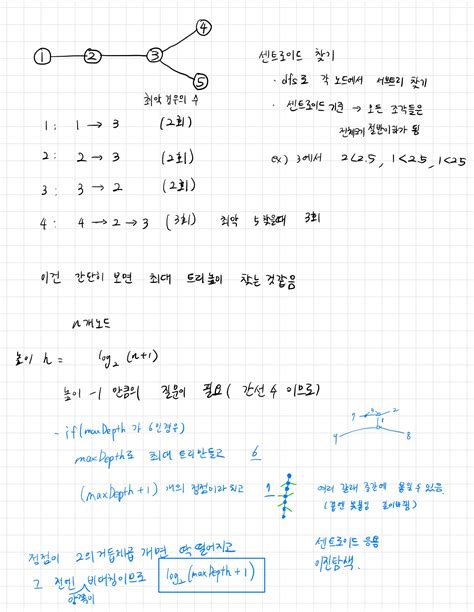 1 2 3 4 5
센트로이드 찾기
· dfs로 각 노드에서 서브트리 찾기
· 센트로이드 기준 → 모든 조각들은
전체의 절반이하가 됨
ex) 3에서 2<2.5, 1<2.5, 1<2.5
최악 경우의 수
1: 1 → 3 (2회)
2: 2 → 3 (2회)
3: 3 → 2 (2회)
4: 4 → 2 → 3 (3회) 최악 5 찾을때 3회
이건 간단히 보면 최대 트리높이 찾는 것같음
n개노드
높이 h = log₂ (n+1)
높이 -1 만큼의 질문이 필요 (간선 수 이므로)
- if(maxDepth가 6인경우)
maxDepth로 최대 트리만들고 6
(maxDepth+1) 개의 정점이라 되고
여러 갈래 중간에 붙일수 있음
정점이 2의 거듭제곱 개면 딱 떨어지고
그 전엔 비대칭이므로 log₂(maxDepth+1)
양쪽이
센트로이드 응용
이진탐색.